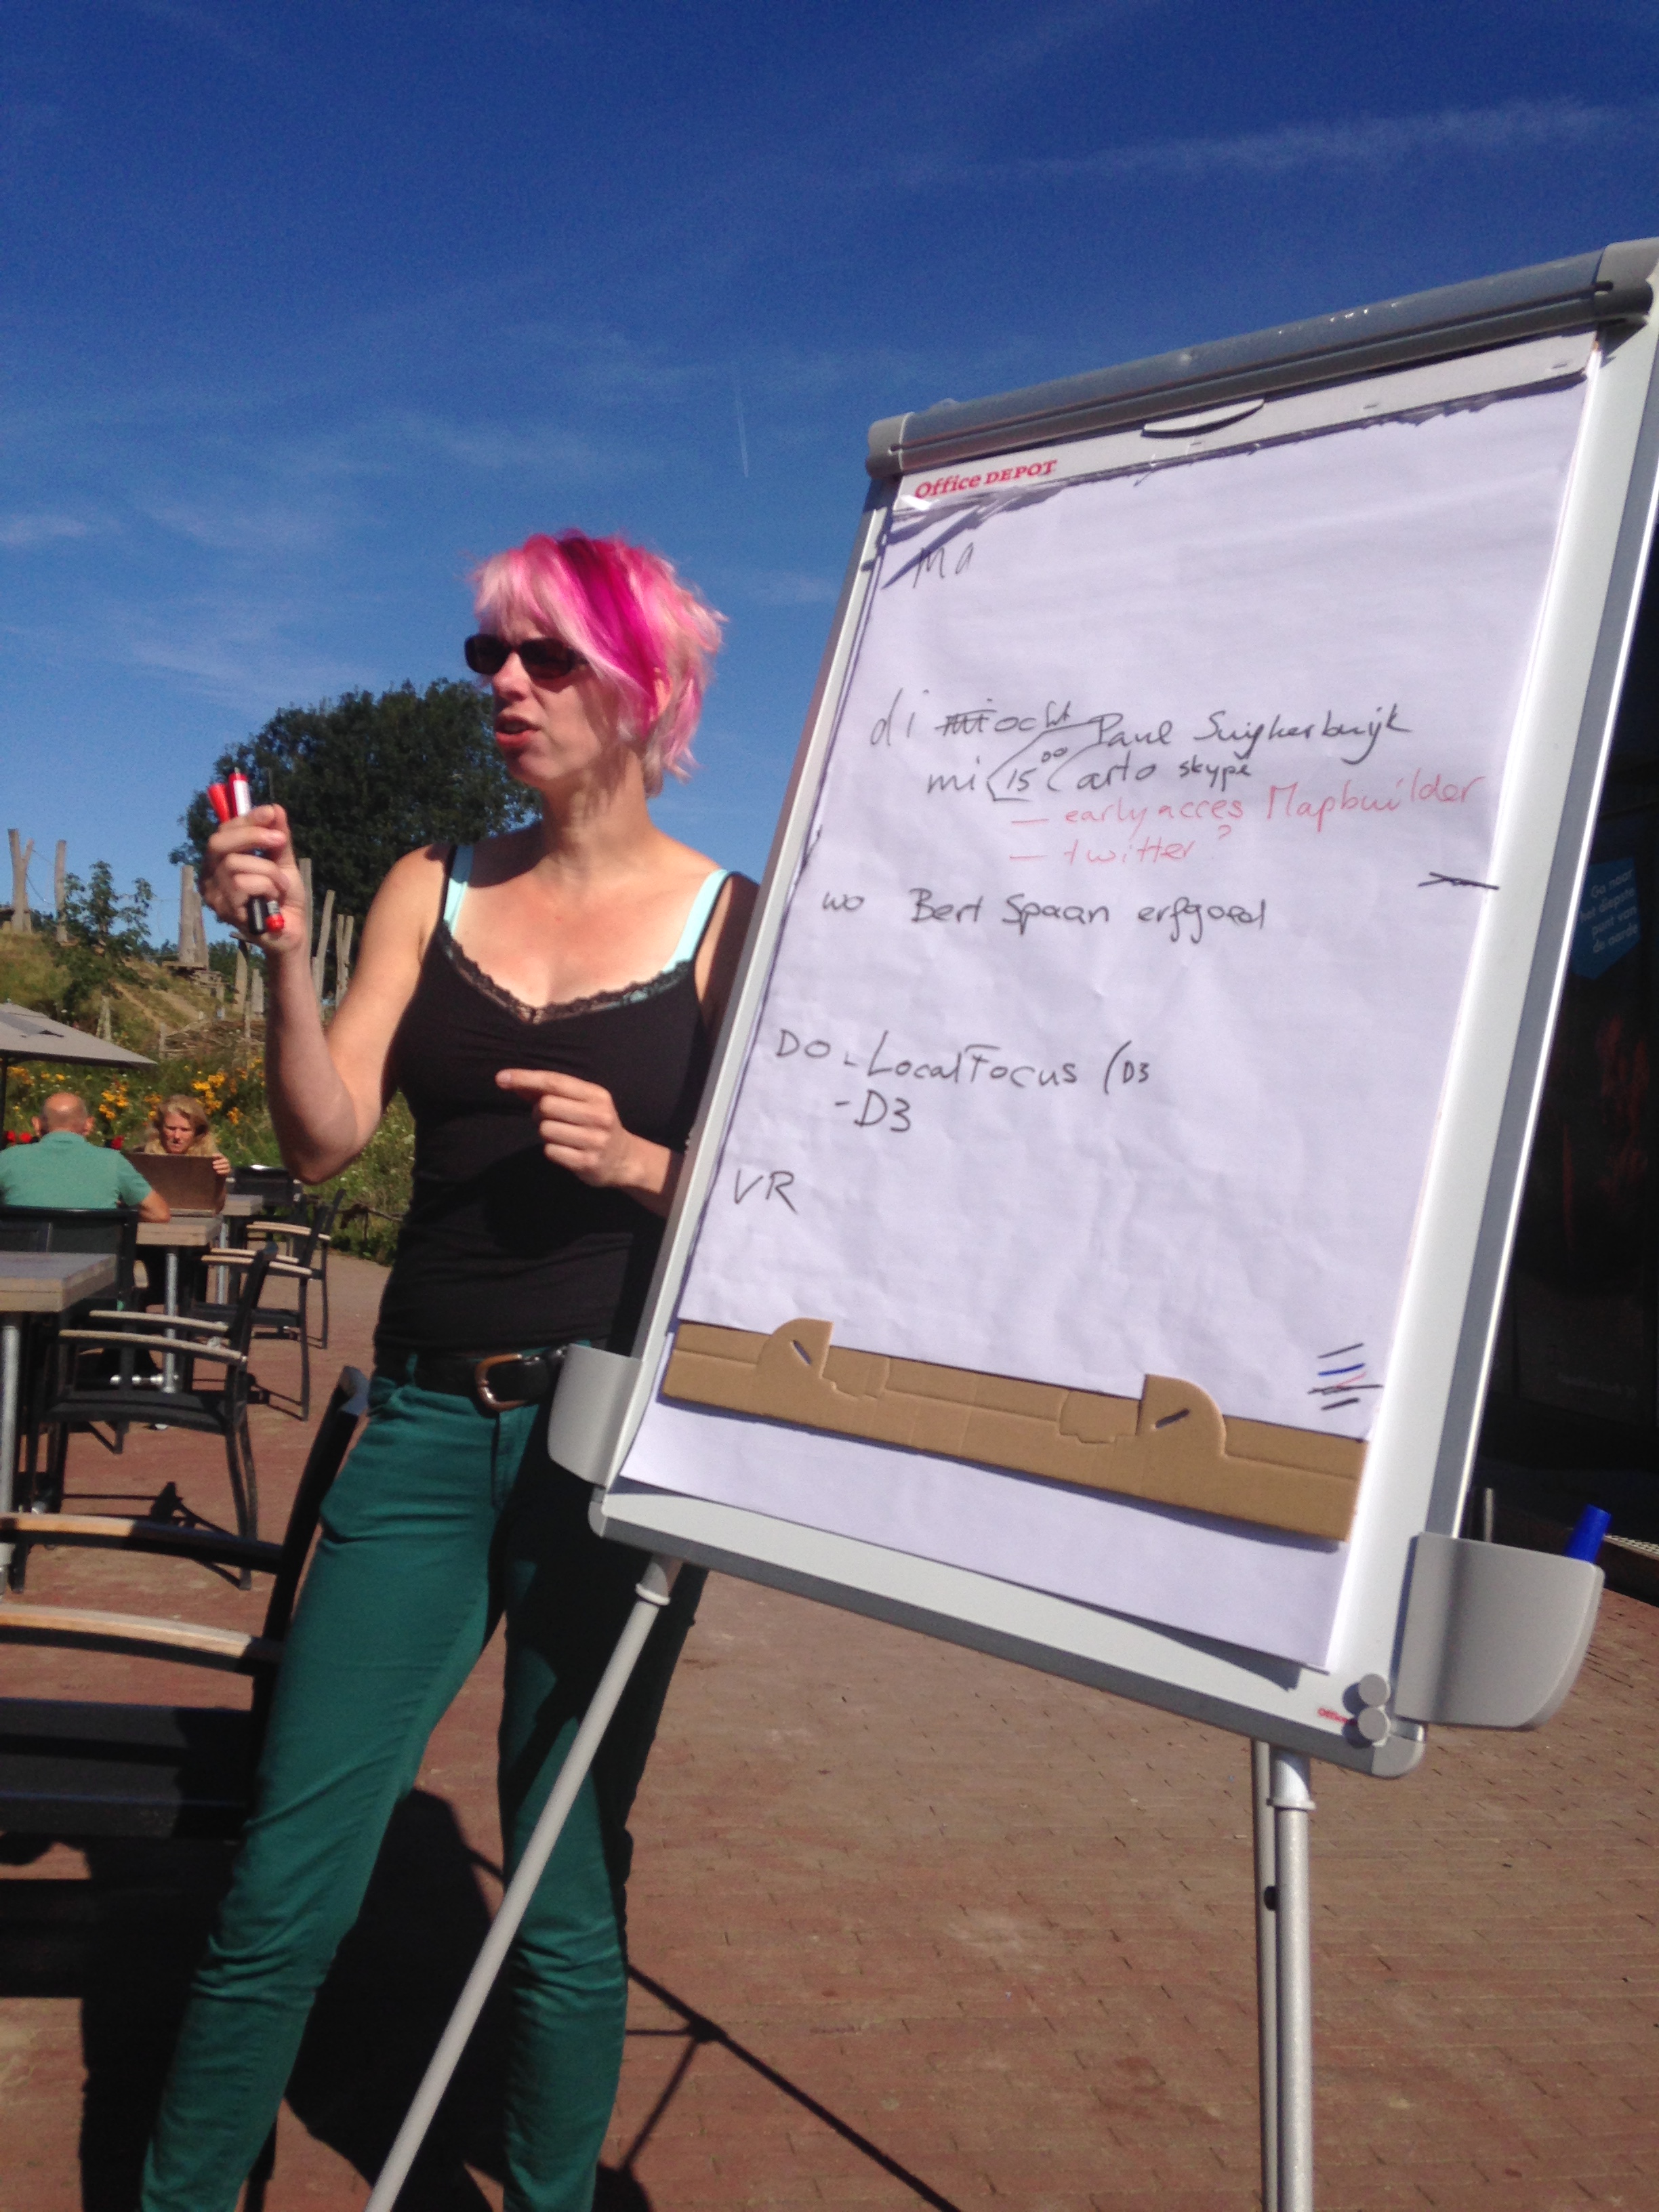 Office DEPOT
Ma
di ocht Paul Suijkerbuijk
mi 15⁰⁰ Carto skype
— early acces Mapbuilder
— twitter?
wo Bert Spaan erfgoed
DO - LocalFocus (D3
- D3
VR
Go naar
het diepste
punt van
de aarde
Office